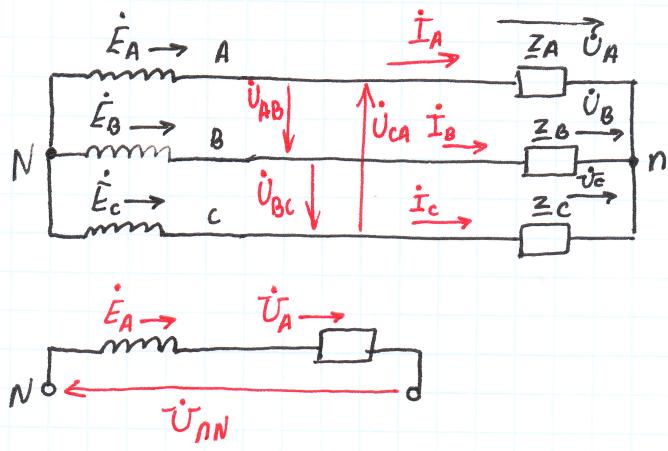 ĖA A İA ZA U̇A
U̇AB U̇CA
N ĖB B İB ZB U̇B n
U̇BC
ĖC C İC ZC U̇C
ĖA U̇A
N U̇nN